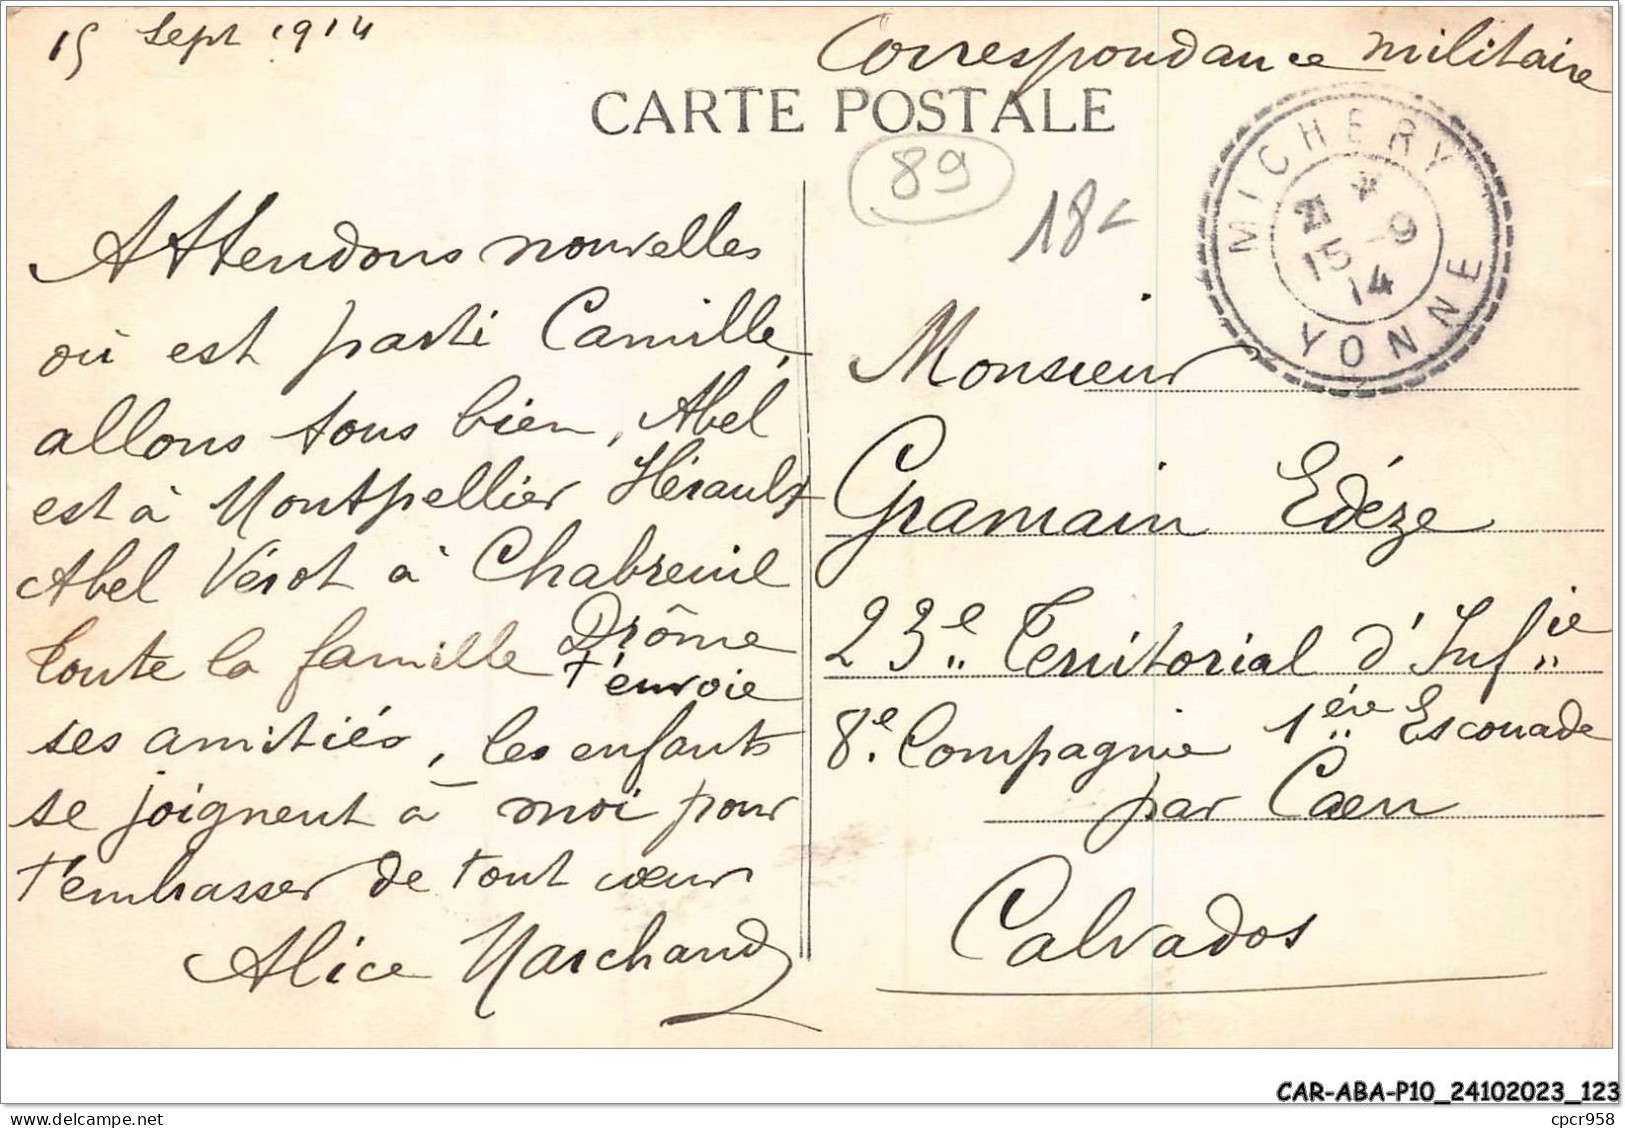 15 Sept 1914
Correspondance militaire
CARTE POSTALE
89
18
MICHERY
21 *
15 -9
14
YONNE
Attendons nouvelles
où est parti Camille,
allons tous bien, Abel
est à Montpellier Hérault
Abel Vérot à Chabreuil
Drôme
toute la famille t'envoie
ses amitiés, les enfants
se joignent à moi pour
t'embrasser de tout cœur
Alice Marchand
Monsieur
Gramain Edéze
23e Territorial d'Infie
8e Compagnie 1ère Escouade
par Caen
Calvados
CAR-ABA-P10_24102023_123
cpcr958